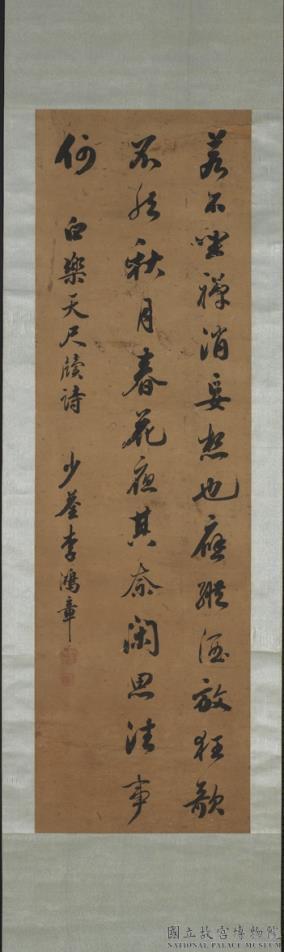 若不坐禪消妄想也應縱酒放狂歌
不然秋月春花夜其奈閑思往事
何 白樂天尺牘詩 少荃李鴻章
國立故宮博物院
NATIONAL PALACE MUSEUM